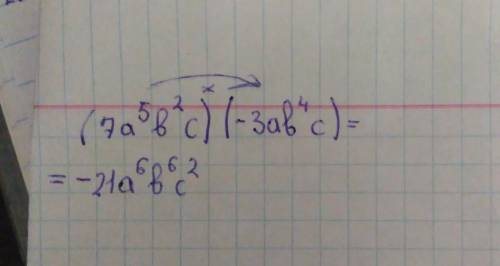 (7a⁵b²c)×(-3ab⁴c)=
=-21a⁶b⁶c²